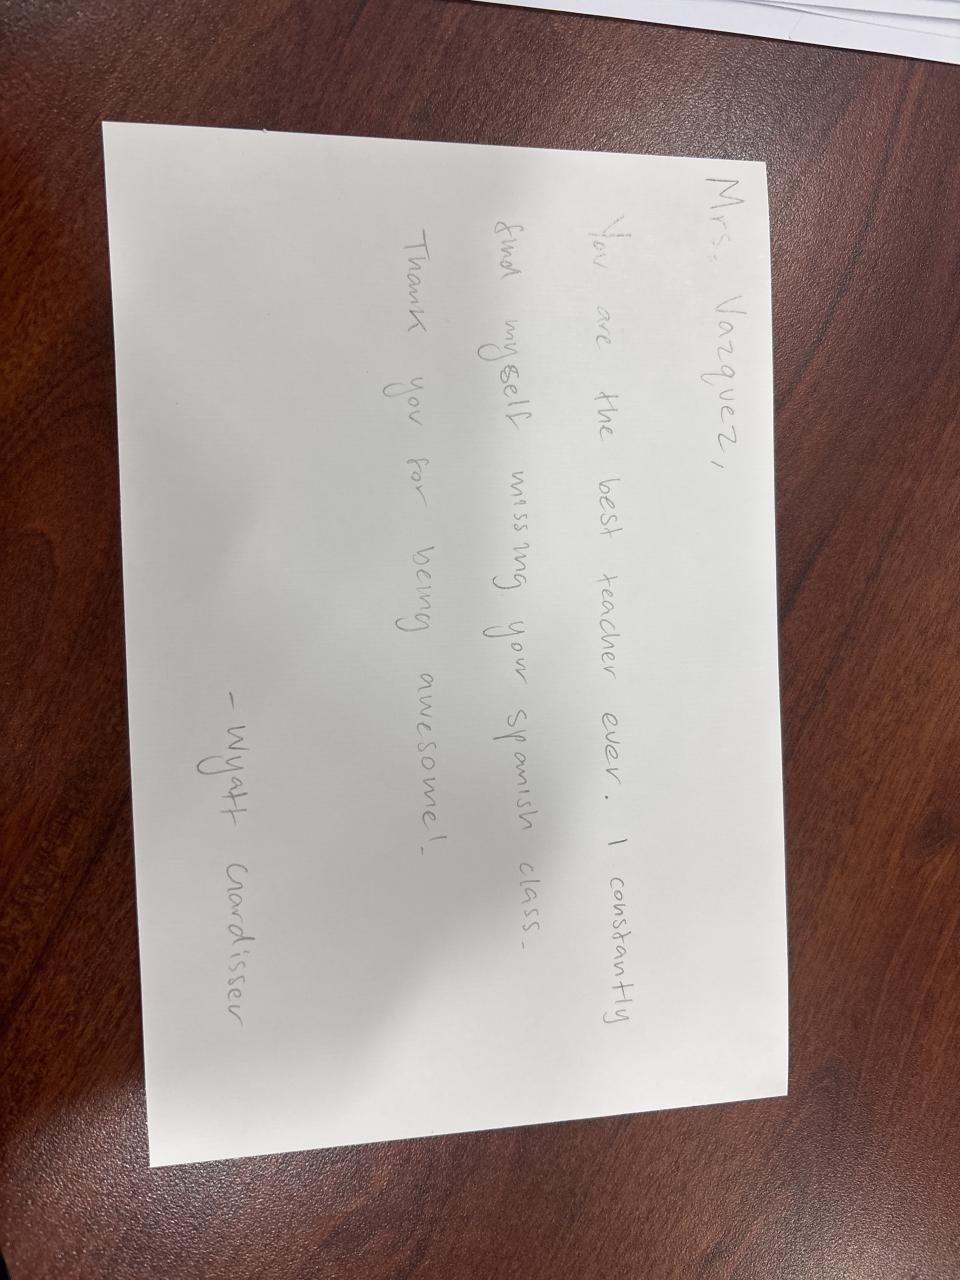 Mrs. Vazquez,
You are the best teacher ever. I constantly
find myself missing your spanish class.
Thank you for being awesome!
- Wyatt Gardisser